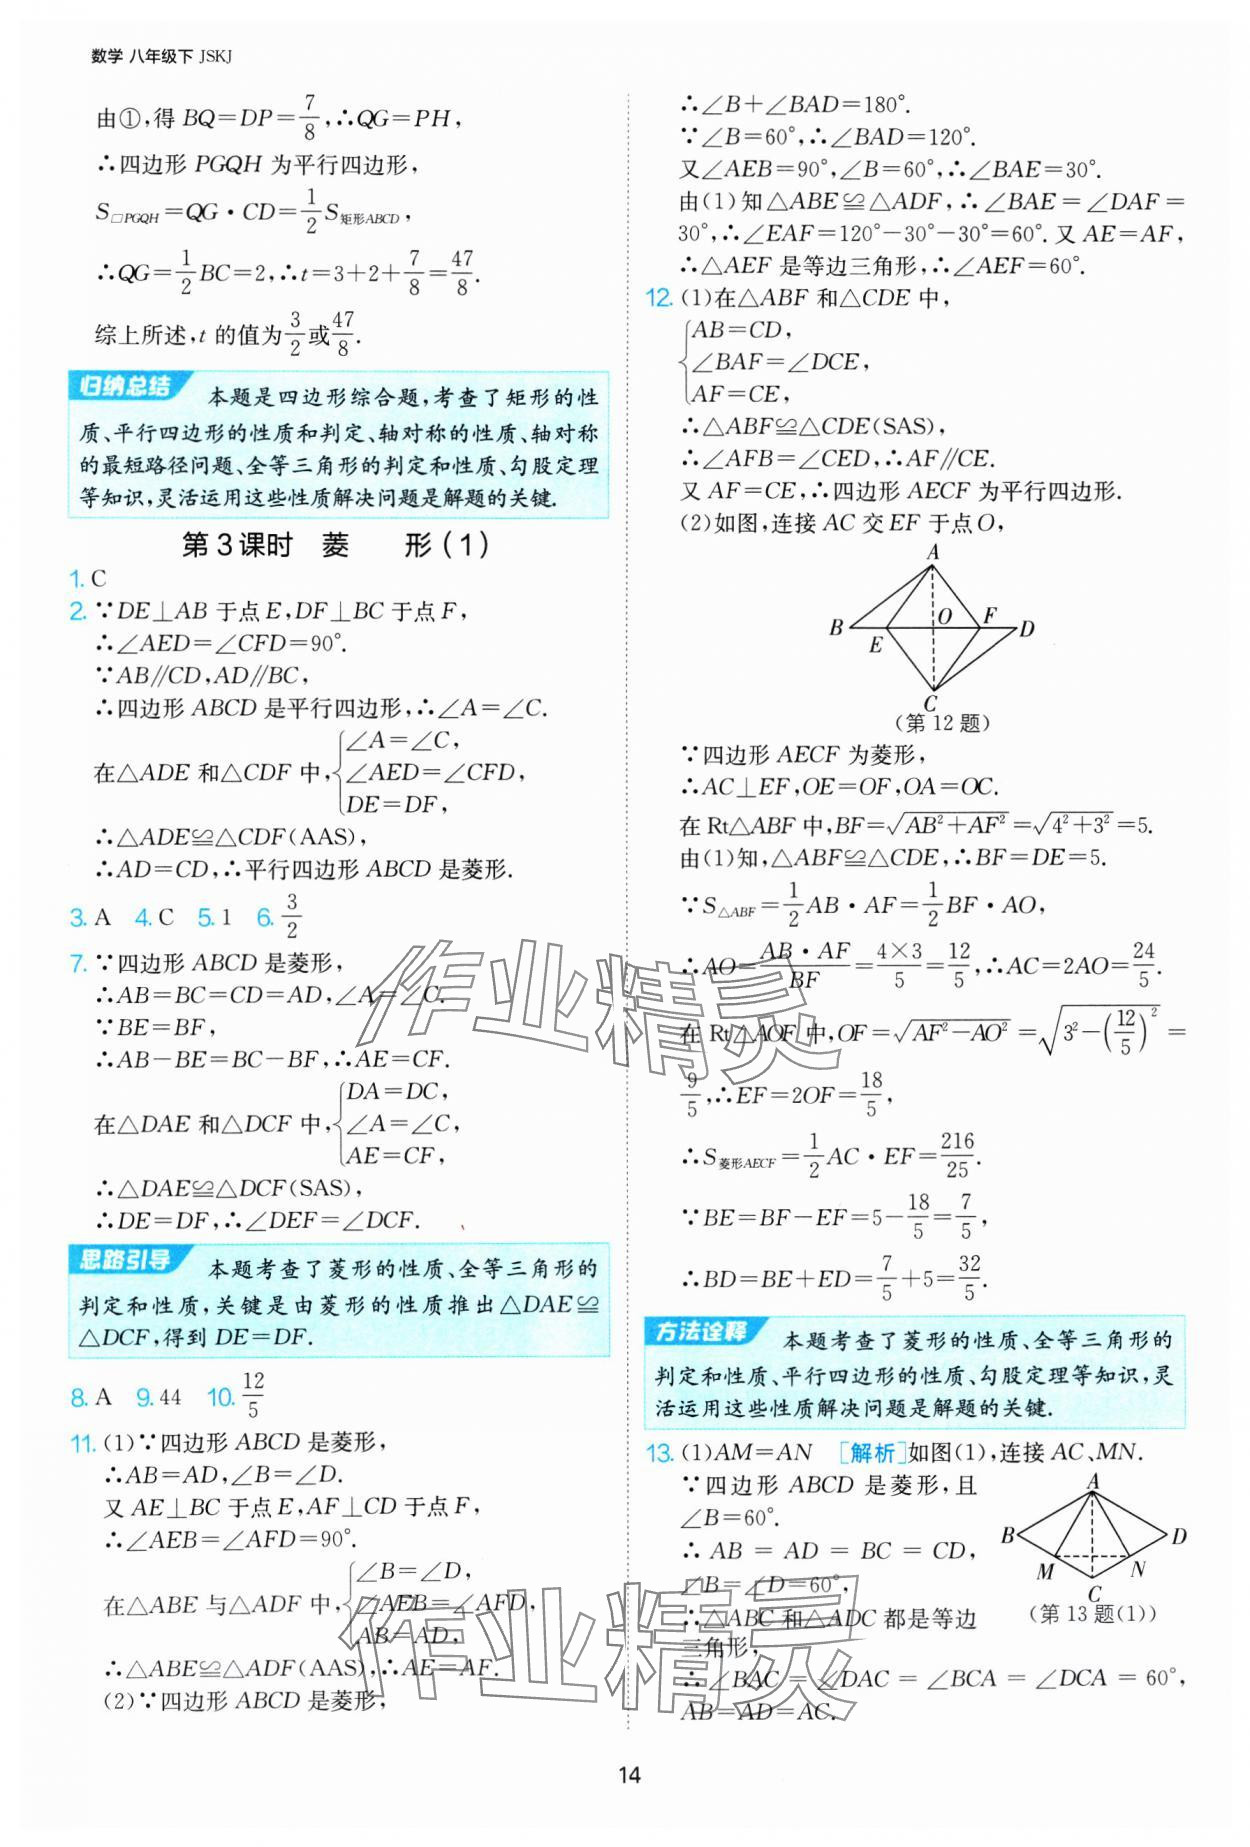 数学 八年级下 JSKJ
由①,得 BQ=DP=7/8,∴QG=PH,
∴四边形 PGQH 为平行四边形,
S□PGQH=QG·CD=1/2S矩形ABCD,
∴QG=1/2BC=2,∴t=3+2+7/8=47/8.
综上所述,t 的值为3/2或47/8.
归纳总结 本题是四边形综合题,考查了矩形的性
质、平行四边形的性质和判定、轴对称的性质、轴对称
的最短路径问题、全等三角形的判定和性质、勾股定理
等知识,灵活运用这些性质解决问题是解题的关键.
第3课时 菱 形(1)
1. C
2. ∵DE⊥AB 于点 E,DF⊥BC 于点 F,
∴∠AED=∠CFD=90°.
∵AB∥CD,AD∥BC,
∴四边形 ABCD 是平行四边形,∴∠A=∠C.
在△ADE 和△CDF 中,{∠A=∠C,
∠AED=∠CFD,
DE=DF,
∴△ADE≌△CDF(AAS),
∴AD=CD,∴平行四边形 ABCD 是菱形.
3. A 4. C 5. 1 6. 3/2
7. ∵四边形 ABCD 是菱形,
∴AB=BC=CD=AD,∠A=∠C.
∵BE=BF,
∴AB-BE=BC-BF,∴AE=CF.
在△DAE 和△DCF 中,{DA=DC,
∠A=∠C,
AE=CF,
∴△DAE≌△DCF(SAS),
∴DE=DF,∴∠DEF=∠DCF.
思路引导 本题考查了菱形的性质、全等三角形的
判定和性质,关键是由菱形的性质推出△DAE≌
△DCF,得到 DE=DF.
8. A 9. 44 10. 12/5
11. (1)∵四边形 ABCD 是菱形,
∴AB=AD,∠B=∠D.
又 AE⊥BC 于点 E,AF⊥CD 于点 F,
∴∠AEB=∠AFD=90°.
在△ABE 与△ADF 中,{∠B=∠D,
∠AEB=∠AFD,
AB=AD,
∴△ABE≌△ADF(AAS),∴AE=AF.
(2)∵四边形 ABCD 是菱形,
∴∠B+∠BAD=180°.
∵∠B=60°,∴∠BAD=120°.
又∠AEB=90°,∠B=60°,∴∠BAE=30°.
由(1)知△ABE≌△ADF,∴∠BAE=∠DAF=
30°,∴∠EAF=120°-30°-30°=60°.又 AE=AF,
∴△AEF 是等边三角形,∴∠AEF=60°.
12. (1)在△ABF 和△CDE 中,
{AB=CD,
∠BAF=∠DCE,
AF=CE,
∴△ABF≌△CDE(SAS),
∴∠AFB=∠CED,∴AF∥CE.
又 AF=CE,∴四边形 AECF 为平行四边形.
(2)如图,连接 AC 交 EF 于点 O,
A
B E O F D
C
(第12题)
∵四边形 AECF 为菱形,
∴AC⊥EF,OE=OF,OA=OC.
在 Rt△ABF 中,BF=√(AB²+AF²)=√(4²+3²)=5.
由(1)知,△ABF≌△CDE,∴BF=DE=5.
∵S△ABF=1/2AB·AF=1/2BF·AO,
∴AO=AB·AF/BF=4×3/5=12/5,∴AC=2AO=24/5.
在 Rt△AOF 中,OF=√(AF²-AO²)=√(3²-(12/5)²)=
9/5,∴EF=2OF=18/5,
∴S菱形AECF=1/2AC·EF=216/25.
∵BE=BF-EF=5-18/5=7/5,
∴BD=BE+ED=7/5+5=32/5.
方法诠释 本题考查了菱形的性质、全等三角形的
判定和性质、平行四边形的性质、勾股定理等知识,灵
活运用这些性质解决问题是解题的关键.
13. (1)AM=AN [解析]如图(1),连接 AC、MN.
∵四边形 ABCD 是菱形,且
∠B=60°.
∴AB=AD=BC=CD,
∠B=∠D=60°,
∴△ABC 和△ADC 都是等边
三角形,
A
B D
M N
C
(第13题(1))
∴∠BAC=∠DAC=∠BCA=∠DCA=60°,
AB=AD=AC.
作业精灵
作业精灵
14